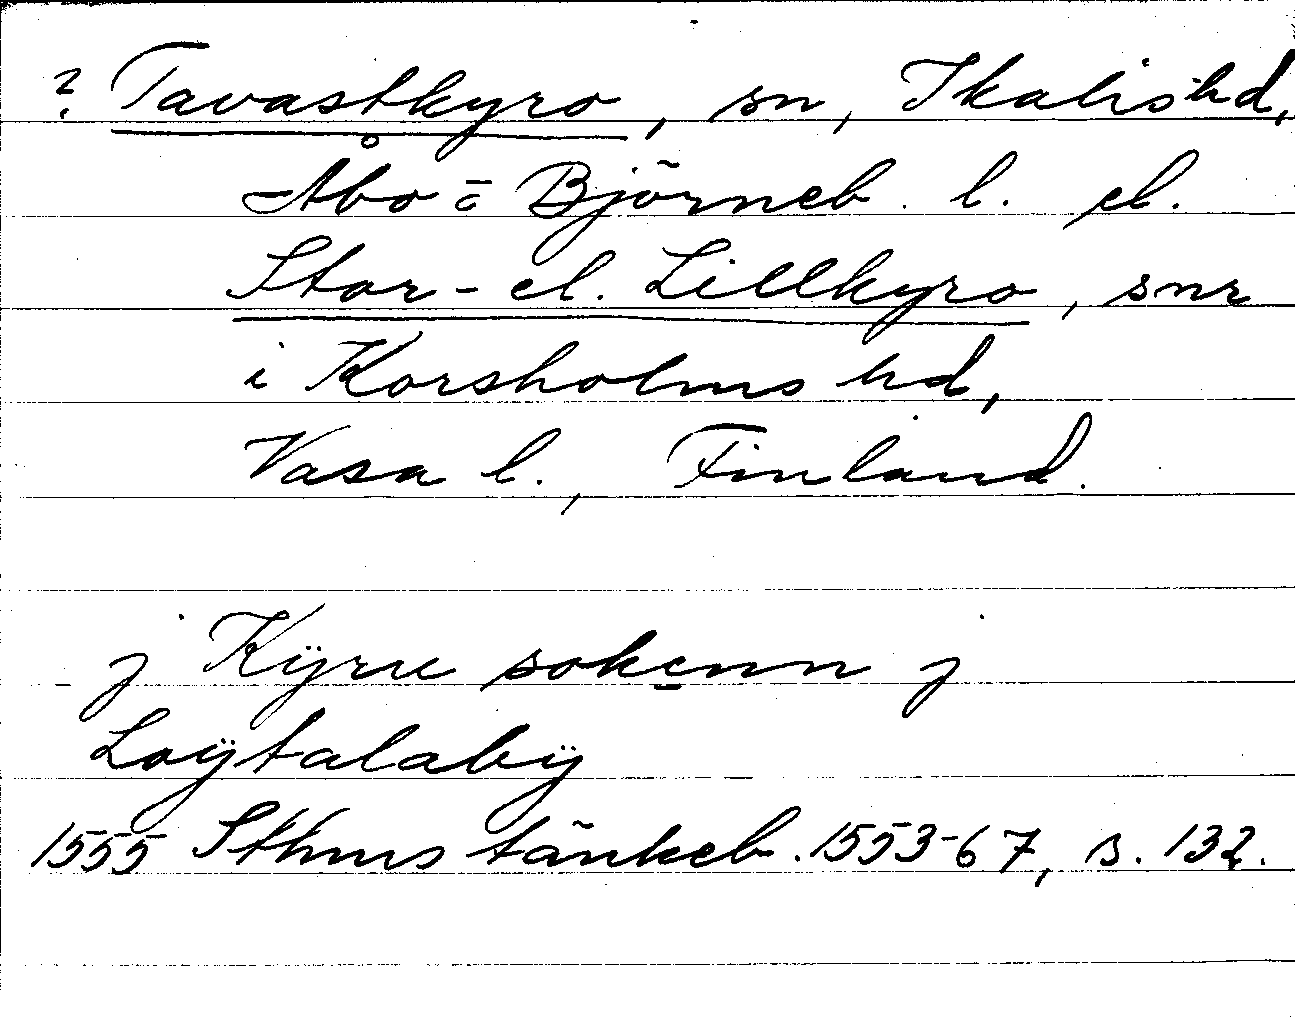 ? Tavastkyro, sn, Ikalis hd,
Åbo o Björneb. l. el.
Stor- el. Lillkyro, snr
i Korsholms hd,
Vasa l., Finland.
j Kÿrie sokenn j
Loÿtalabÿ
1555 Sthms tänkeb. 1553-67, s. 132.